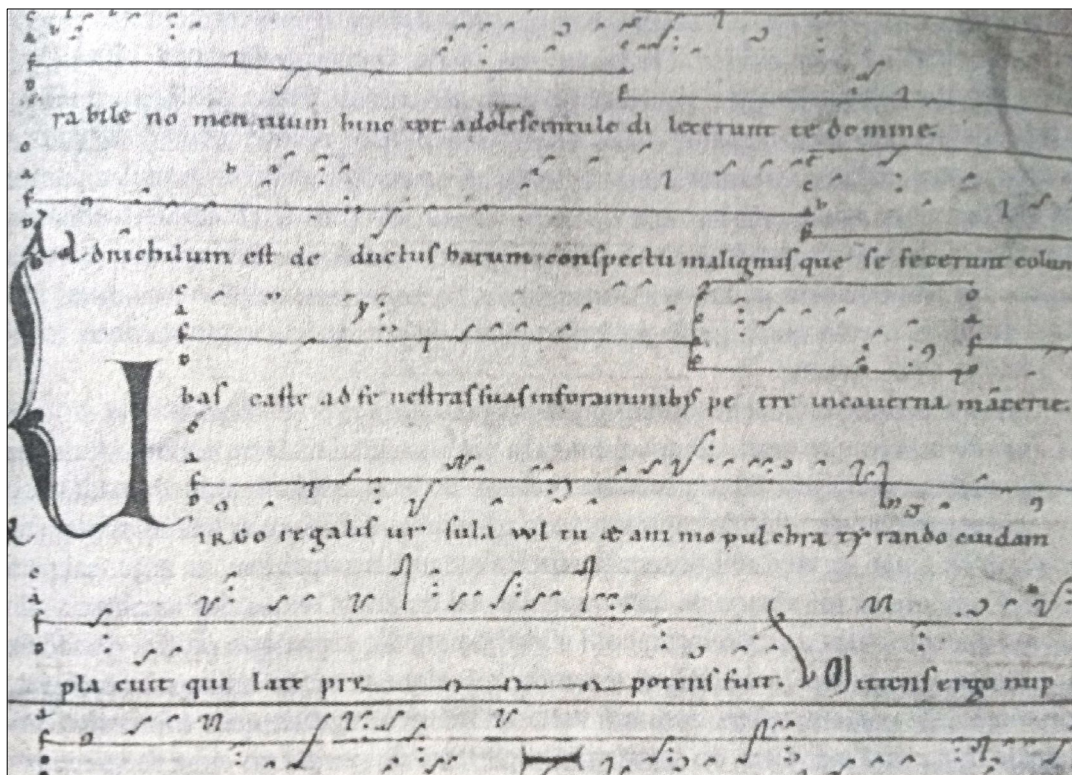 rabile no men tuum hinc xpe adolescentule di lexerunt te domine.
Ad dnichilum est de ductus harum conspectu malignus que se fecerunt colum
bas caste ad fe nestras suas in foraminibus pe tre in cauerna macerie.
VIRGO regalis ur sula vul tu & ani mo pul chra ty rando cuidam
pla cuit qui late pre potens fuit. Mittens ergo nup